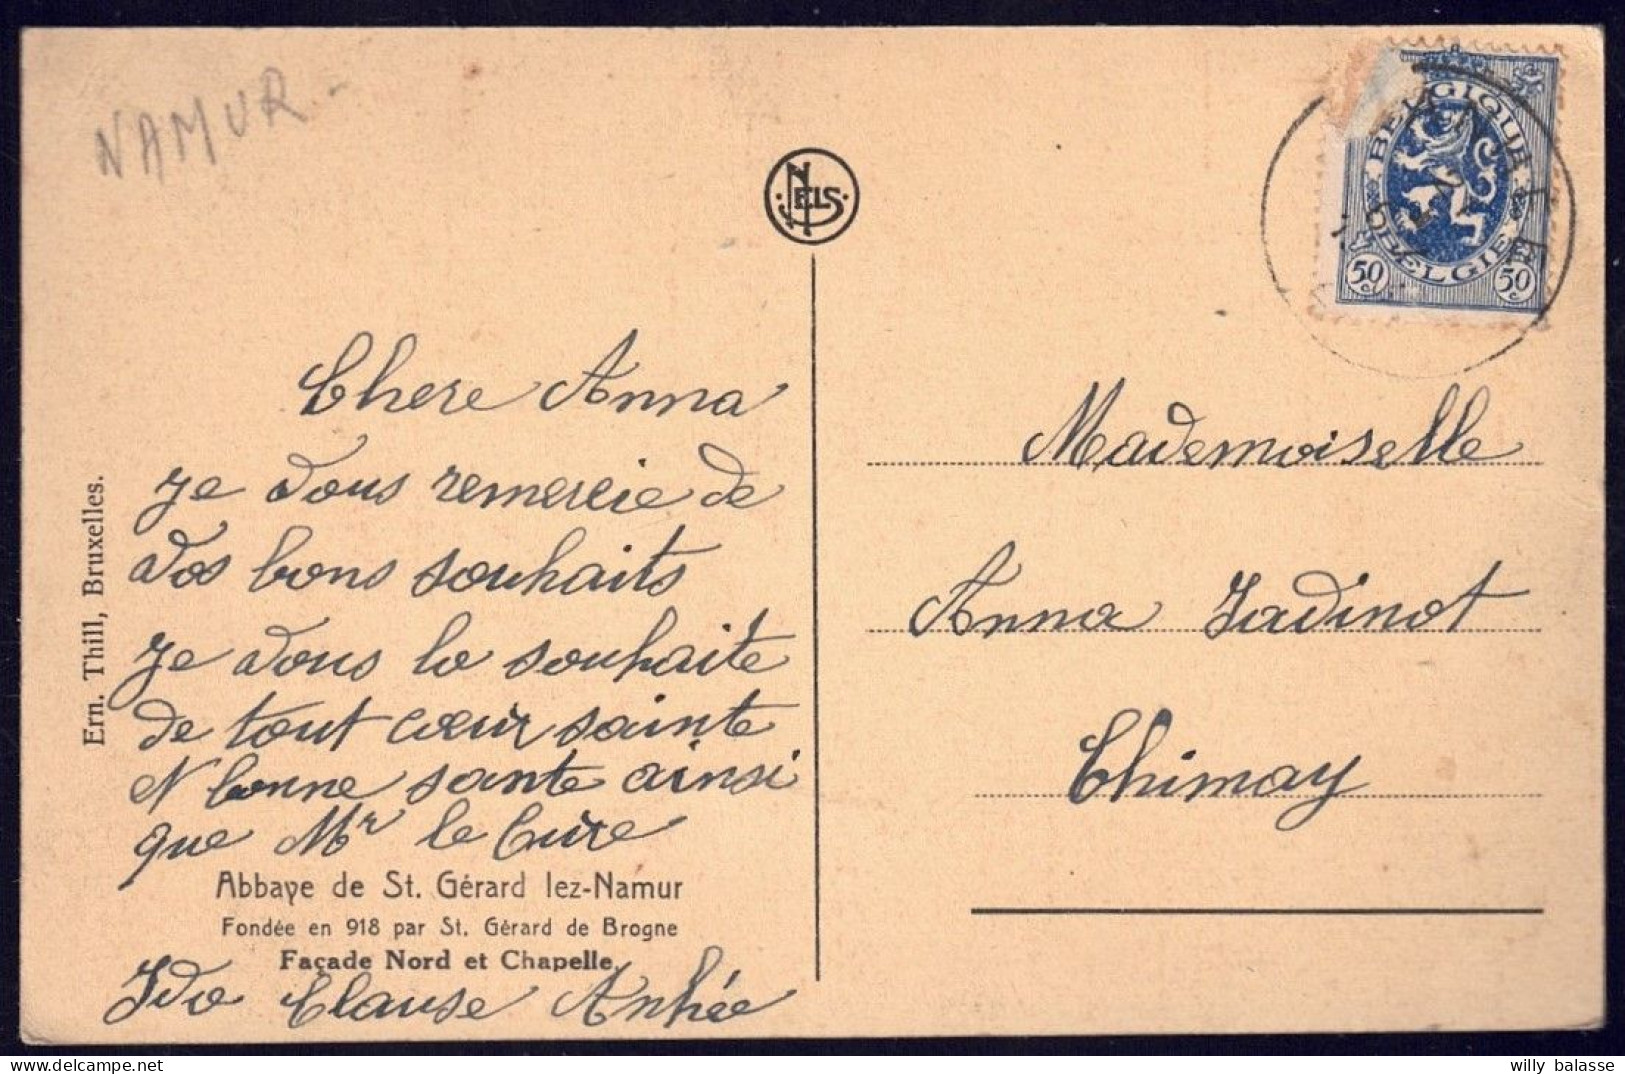 NAMUR -
NELS
BELGIQUE
BELGIE
50 c
50 c
Chere Anna
je vous remercie de
vos bons souhaits
je vous le souhaite
de tout cœur sainte
et bonne sante ainsi
que Mr le Cure
Abbaye de St. Gérard lez-Namur
Fondée en 918 par St. Gérard de Brogne
Façade Nord et Chapelle.
Ida Clause Anhée
Ern. Thill, Bruxelles.
Mademoiselle
Anna Jadinot
Chimay
willy balasse